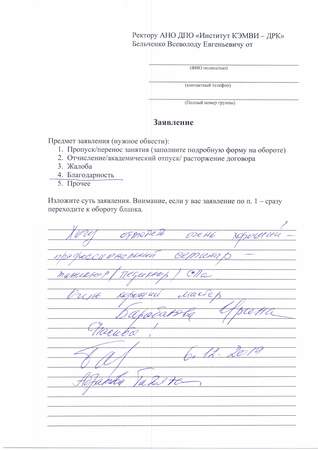 Ректору АНО ДПО «Институт КЭМВИ – ДРК»
Бельченко Всеволоду Евгеньевичу от
(ФИО полностью)
(контактный телефон)
(Полный номер группы)
Заявление
Предмет заявления (нужное обвести):
1. Пропуск/перенос занятия (заполните подробную форму на обороте)
2. Отчисление/академический отпуск/ расторжение договора
3. Жалоба
4. Благодарность
5. Прочее
Изложите суть заявления. Внимание, если у вас заявление по п. 1 – сразу
переходите к обороту бланка.
Хочу отметить очень хороший –
профессиональный семинар –
маникюр / педикюр /
Очень хороший мастер
Барабанова Ирина
Спасибо!
6.12.2019